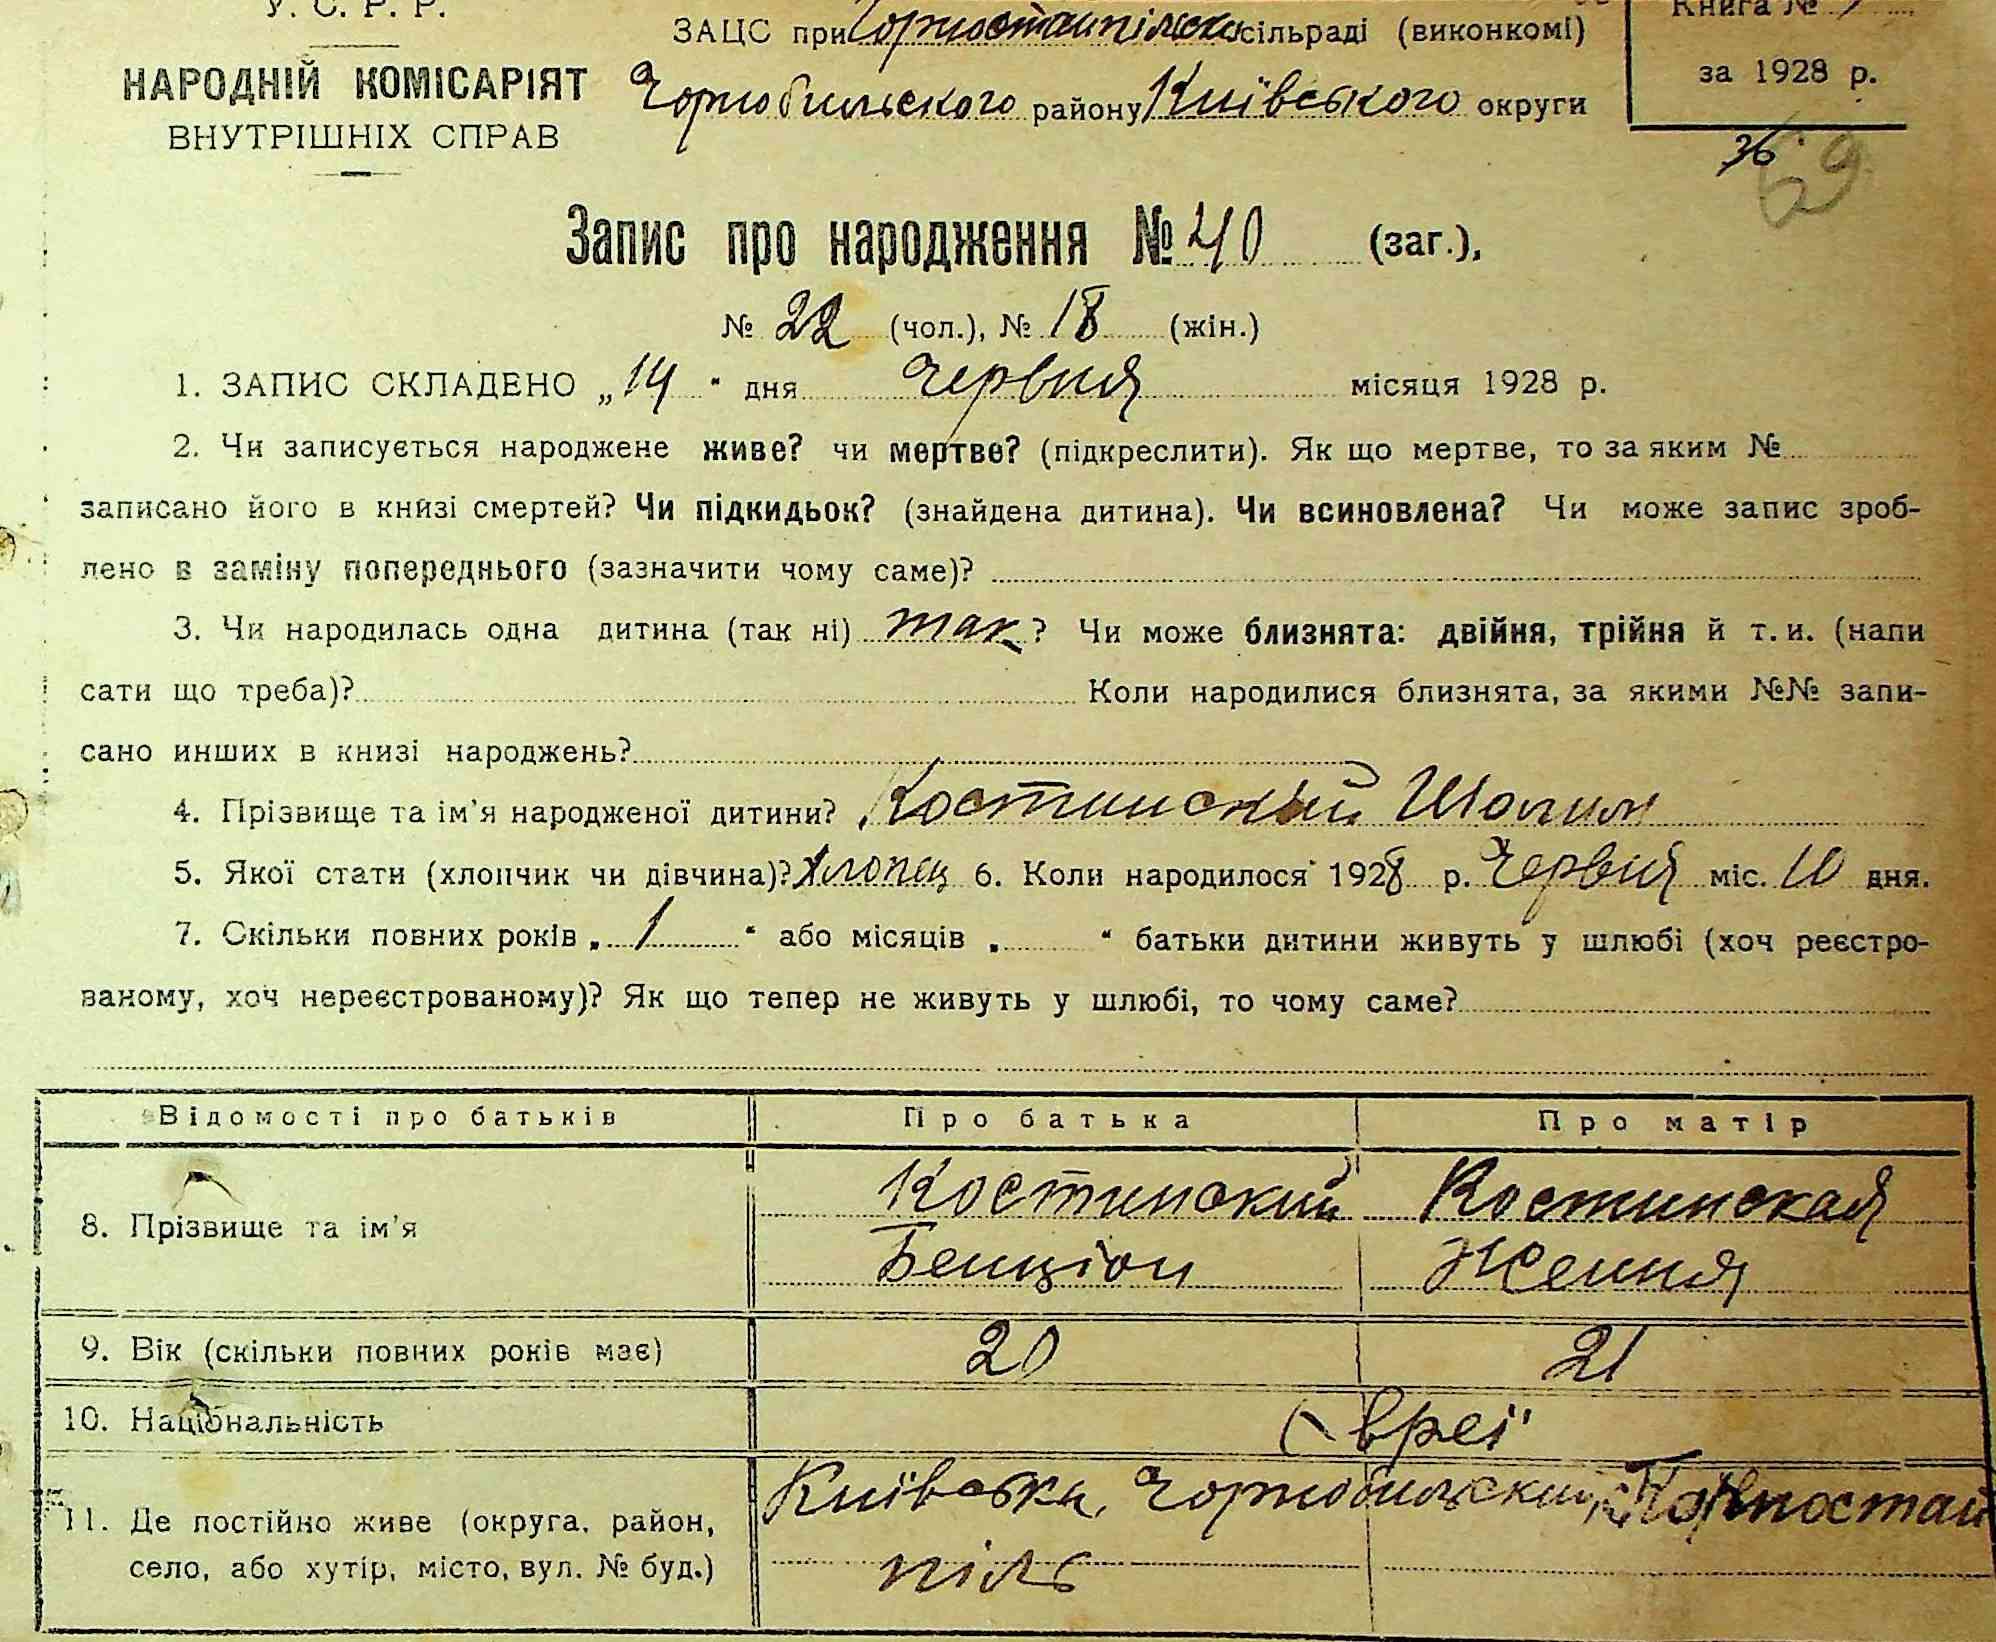 У. С. Р. Р.
НАРОДНІЙ КОМІСАРІЯТ
ВНУТРІШНІХ СПРАВ
ЗАЦС при Горностайпільск сільраді (виконкомі)
Чорнобильського району Київського округи
Книга №
за 1928 р.
36
69
Запис про народження № 40 (заг.),
№ 22 (чол.), № 18 (жін.)
1. ЗАПИС СКЛАДЕНО „14" дня Червня місяця 1928 р.
2. Чи записується народжене живе? чи мертве? (підкреслити). Як що мертве, то за яким №
записано його в книзі смертей? Чи підкидьок? (знайдена дитина). Чи всиновлена? Чи може запис зроб-
лено в заміну попереднього (зазначити чому саме)?
3. Чи народилась одна дитина (так ні) так? Чи може близнята: двійня, трійня й т. и. (напи
сати що треба)? Коли народилися близнята, за якими №№ запи-
сано инших в книзі народжень?
4. Прізвище та ім'я народженої дитини? Костинский Шолим
5. Якої стати (хлопчик чи дівчина)? хлопец 6. Коли народилося 1928 р. Червня міс. 10 дня.
7. Скільки повних років „ 1 " або місяців „ " батьки дитини живуть у шлюбі (хоч реєстро-
ваному, хоч нереєстрованому)? Як що тепер не живуть у шлюбі, то чому саме?
Відомості про батьків Про батька Про матір
8. Прізвище та ім'я Костинский Костинская
Бенціон Ження
9. Вік (скільки повних років має) 20 21
10. Національність Євреї
11. Де постійно живе (округа, район, Київська, Чорнобильский, Горностай
село, або хутір, місто, вул. № буд.) піль